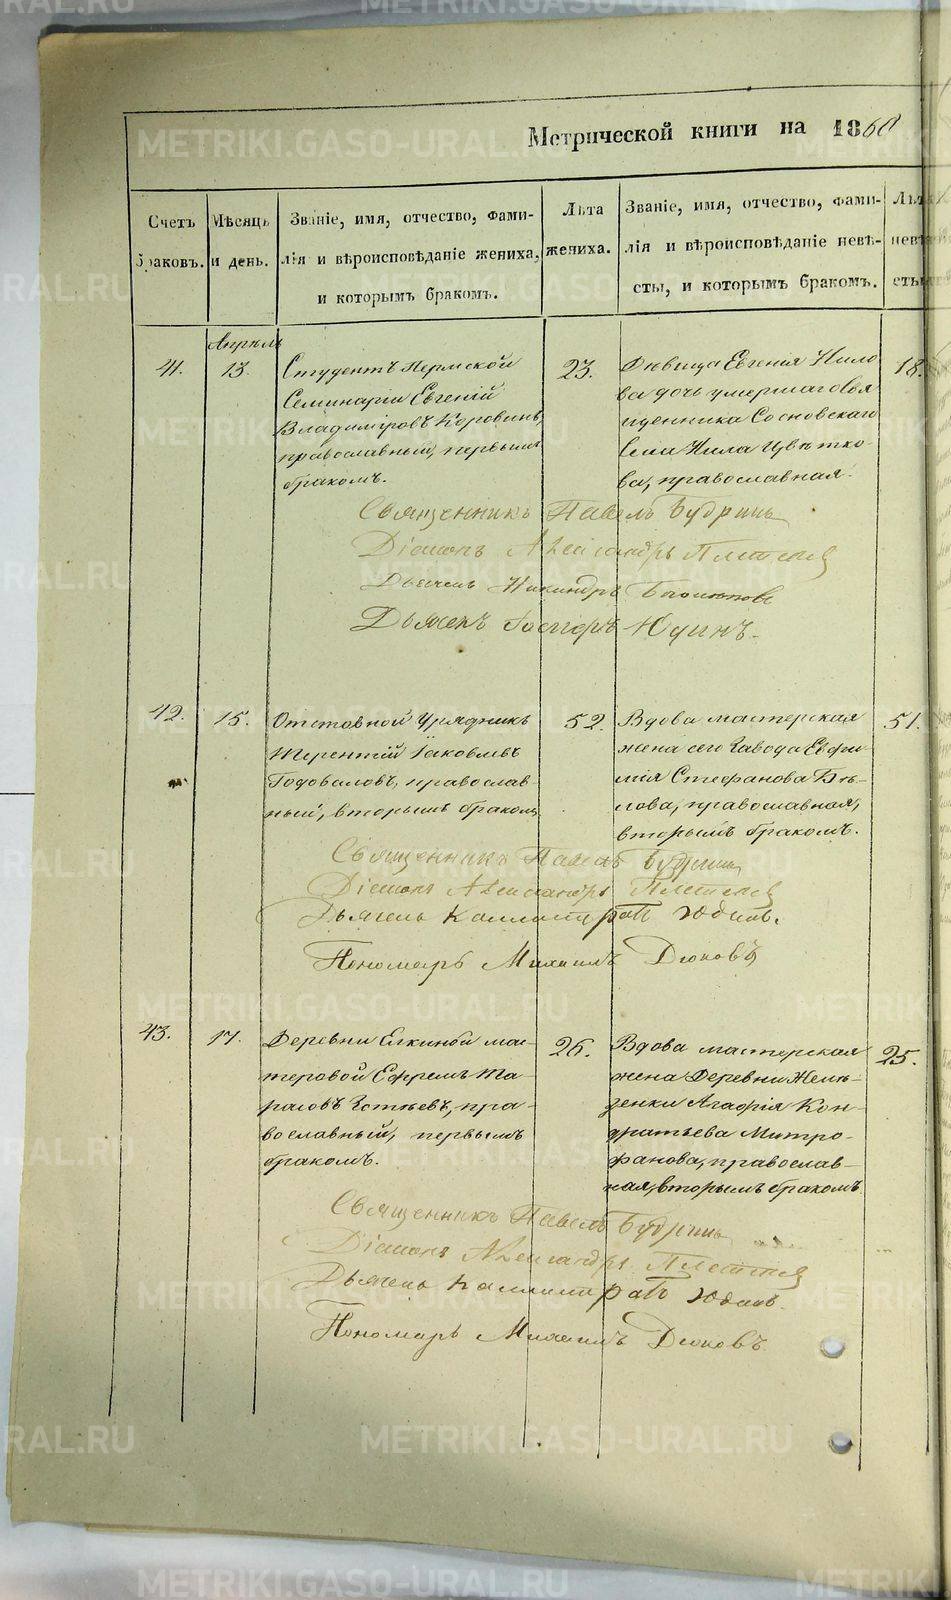 Метрической книги на 1860
Счетъ браковъ.
Мѣсяцъ и день.
Званіе, имя, отчество, фами-
лія и вѣроисповѣданіе жениха,
и которымъ бракомъ.
Лѣта жениха.
Званіе, имя, отчество, фами-
лія и вѣроисповѣданіе невѣ-
сты, и которымъ бракомъ.
Апрѣль
41.
13.
Студентъ Пермской
Семинаріи Евгеній
Владиміровъ Коровинъ,
православный, первымъ
бракомъ.
23.
Дѣвица Евгенія Нило
ва дочь умершаго Свя
щенника Сосновскаго
Села Нила Цвѣтко-
ва, православная.
18.
Священникъ Павелъ Будринъ
Діаконъ Александръ
Дьячекъ Никандръ
Дьячекъ Юдинъ.
42.
15.
Отставной Урядникъ
Терентій Іаковлевъ
Годоваловъ, православ-
ный, вторымъ бракомъ
52.
Вдова мастерская
жена сего Завода Евфи-
мія Стефанова Бѣ-
лова, православная,
вторымъ бракомъ.
51.
Священникъ Павелъ Будринъ
Діаконъ Александръ
Дьячекъ Каллистратъ Юдинъ.
Пономарь Михаилъ Дюковъ
43.
17.
Деревни Елкиной мас-
теровой Ефремъ Та-
расовъ, пра-
вославный, первымъ
бракомъ.
26.
Вдова мастерская
жена Деревни
Агафія Кон-
дратьева Митро-
фанова, православ-
ная, вторымъ бракомъ
25.
Священникъ Павелъ Будринъ
Діаконъ Александръ
Дьячекъ Каллистратъ Юдинъ.
Пономарь Михаилъ Дюковъ
METRIKI.GASO-URAL.RU